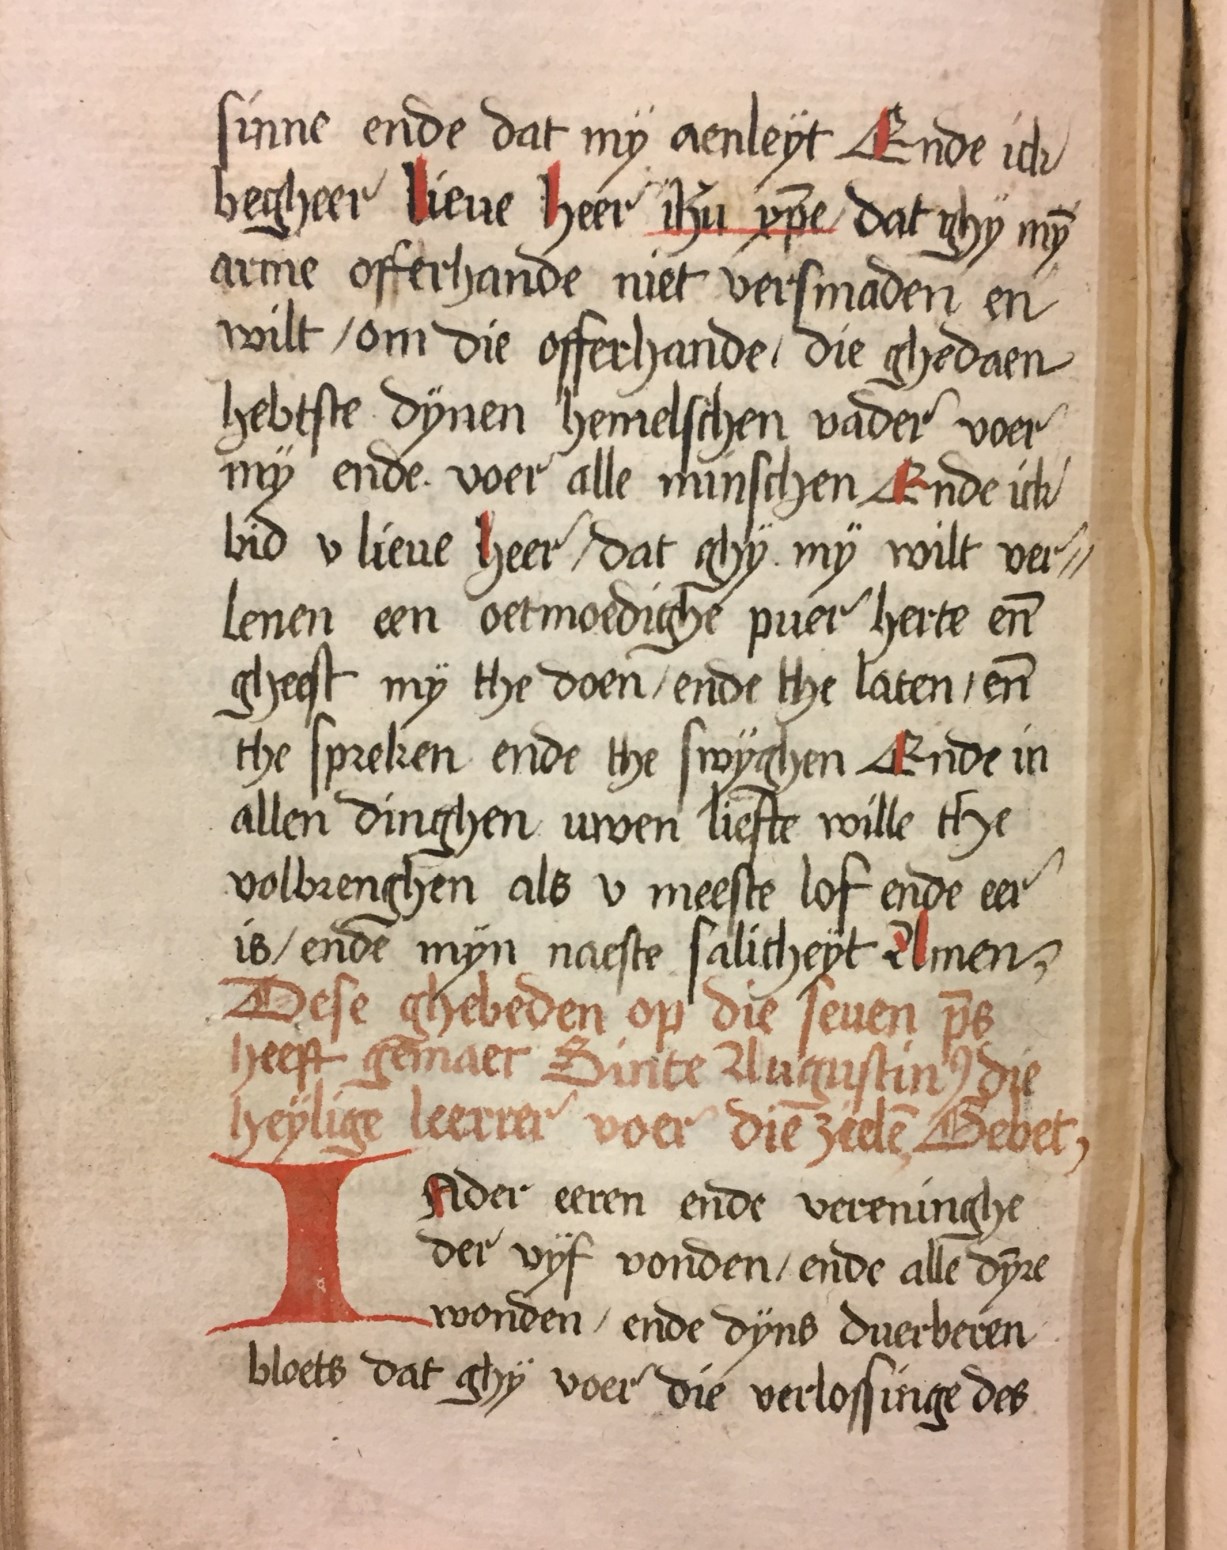 sinne ende dat mÿ aenleÿt Ende ick
begheer lieue heer ihu xpe dat ghÿ mȳ
arme offerhande niet versmaden en
wilt / om die offerhande / die ghedaen
hebtste dÿnen hemelschen vader voer
mÿ ende voer alle minschen Ende ick
bid v lieue heer / dat ghÿ mÿ wilt ver//
lenen een oetmoedighe puer herte en̄
gheest mÿ the doen / ende the laten / en̄
the spreken ende the swÿghen Ende in
allen dinghen uwen liefte wille the
volbrenghen als v meeste lof ende eer
is / ende mÿn naeste salicheÿt Amen
Dese ghebeden op die seuen p̄s
heeft gemaet Sinte Augustinꝰ die
heÿlige leerrer voer die zielē Gebet
I Nder eeren ende vereninghe
der vÿf vonden / ende allē dÿre
wonden / ende dÿns duerberen
bloets dat ghÿ voer die verlossinge des